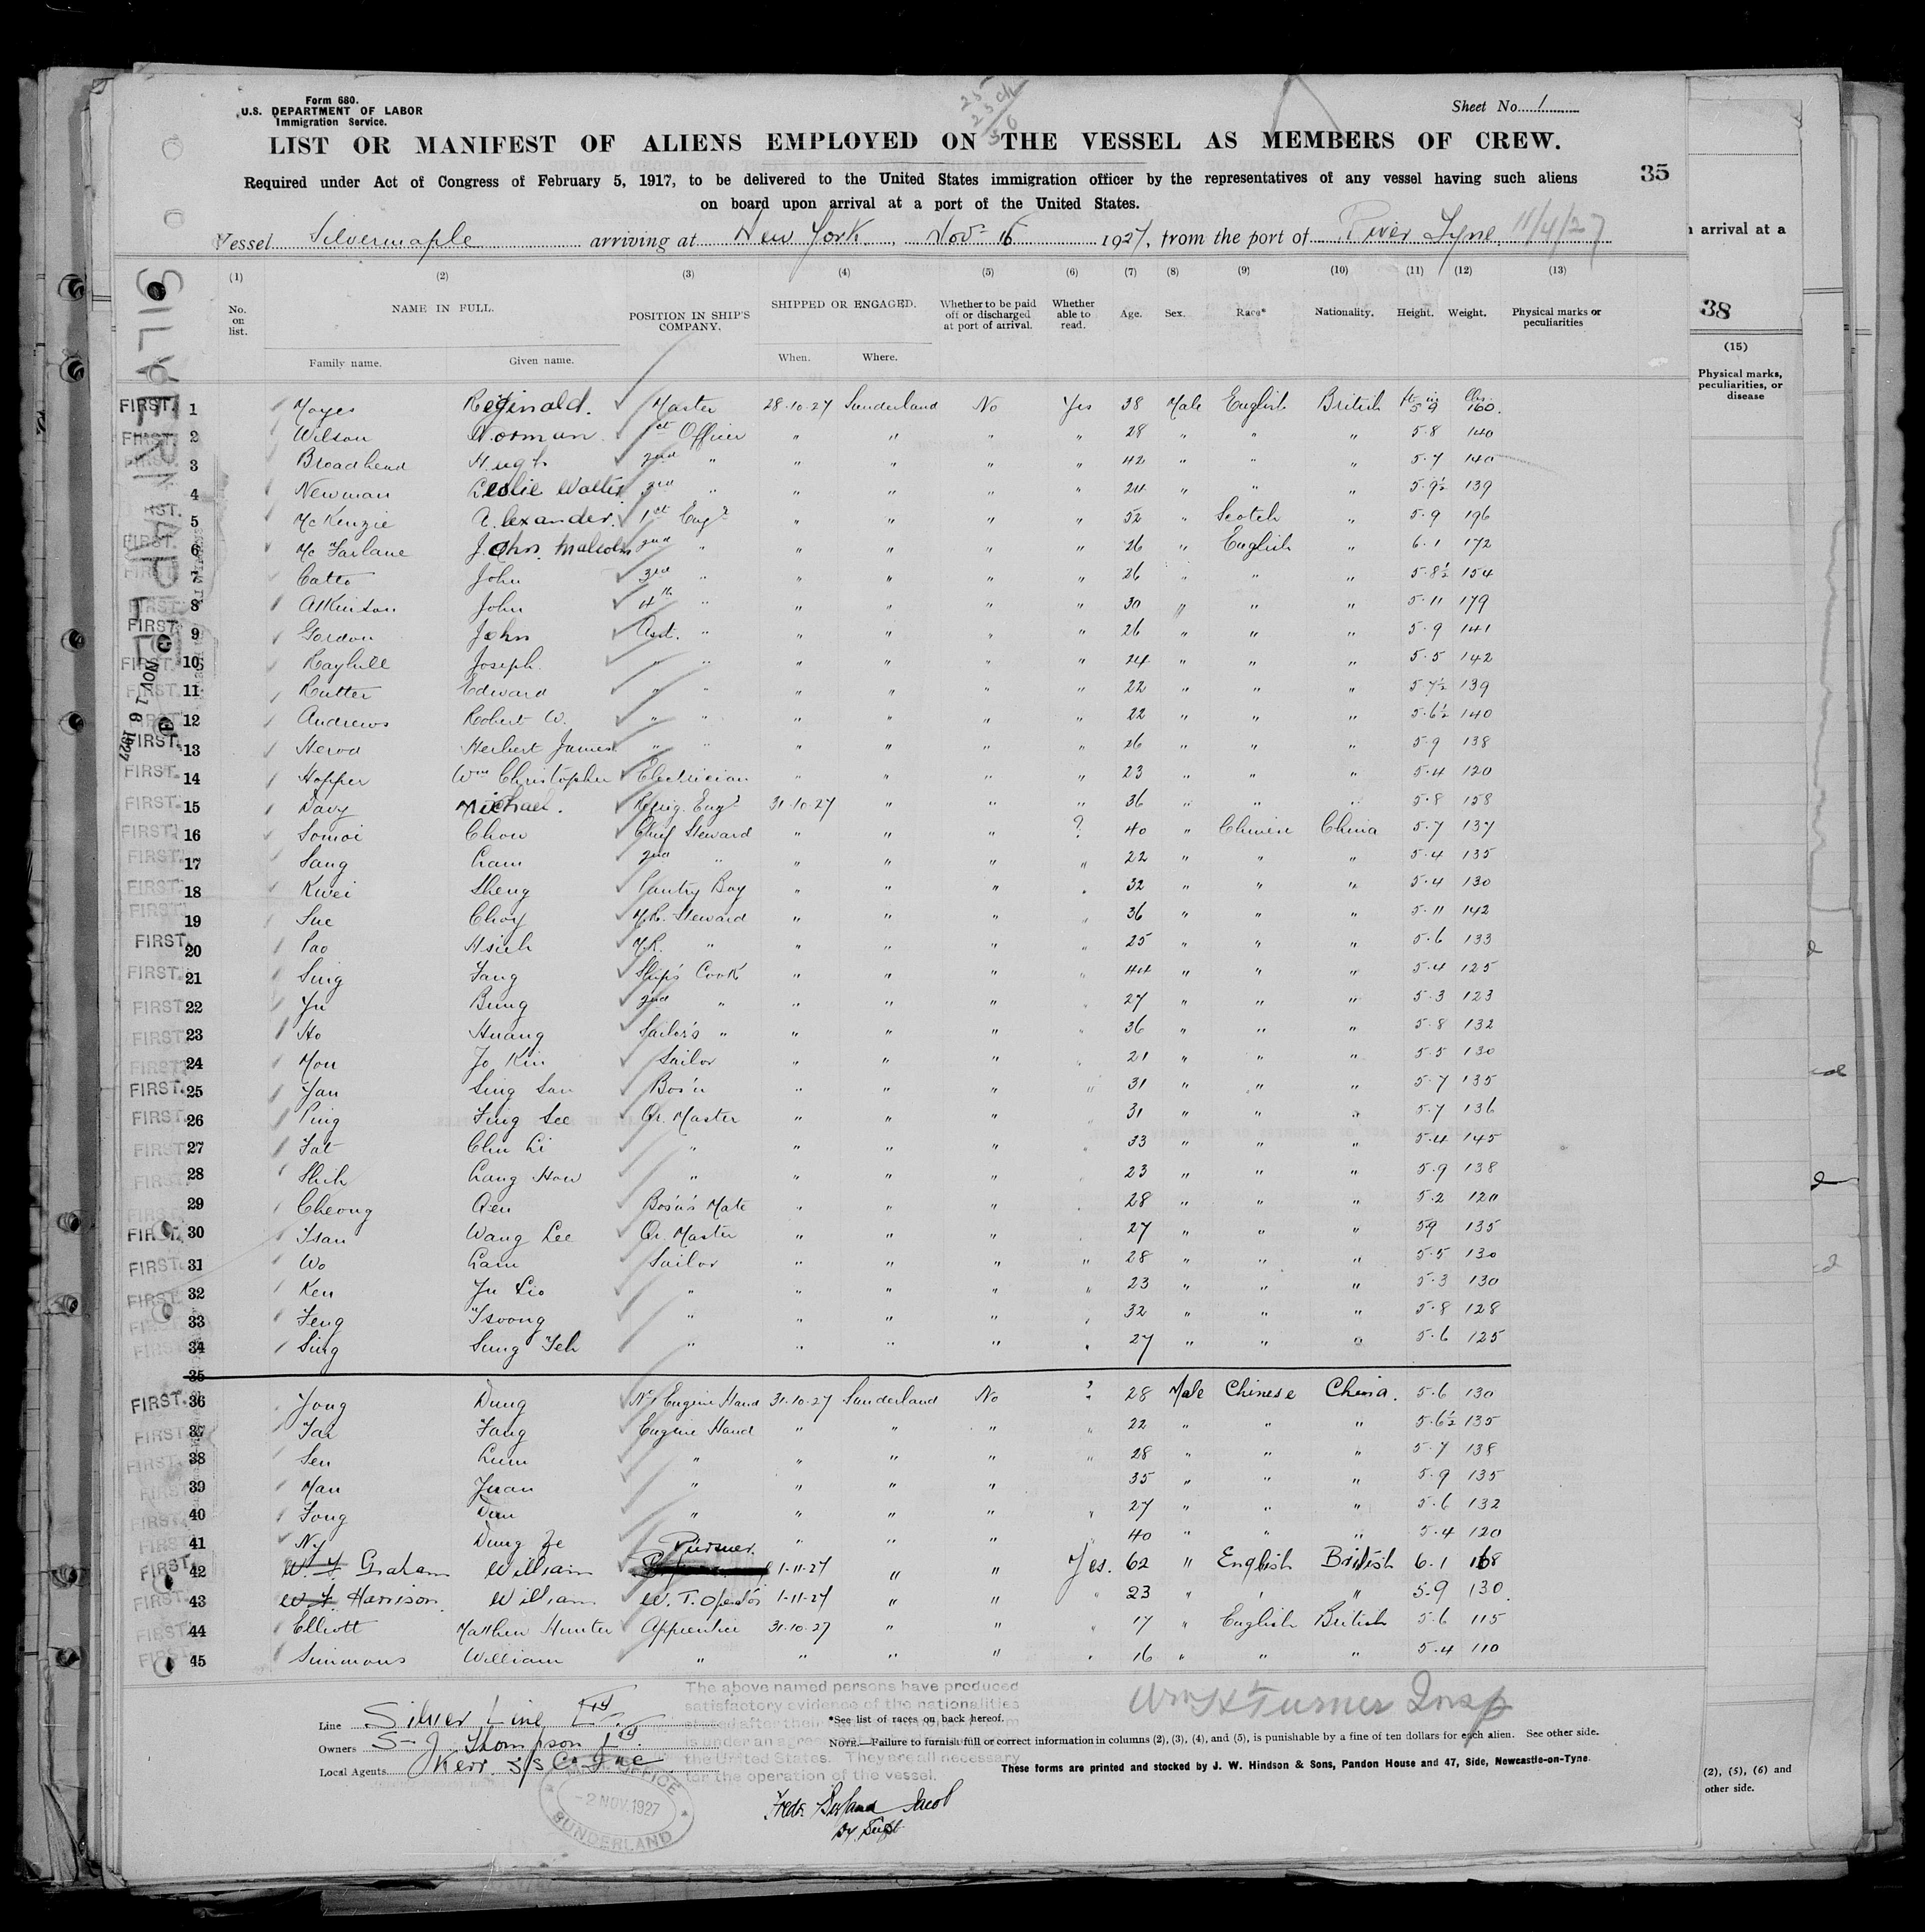 Form 680.
U.S. DEPARTMENT OF LABOR
Immigration Service.
Sheet No. 1
LIST OR MANIFEST OF ALIENS EMPLOYED ON THE VESSEL AS MEMBERS OF CREW.
35
Required under Act of Congress of February 5, 1917, to be delivered to the United States immigration officer by the representatives of any vessel having such aliens
on board upon arrival at a port of the United States.
Vessel Silvermaple arriving at New York, Nov 16 1927, from the port of River Tyne 11/4/27
(1) (2) (3) (4) (5) (6) (7) (8) (9) (10) (11) (12) (13)
No. on list. NAME IN FULL. POSITION IN SHIP'S COMPANY. SHIPPED OR ENGAGED. Whether to be paid off or discharged at port of arrival. Whether able to read. Age. Sex. Race* Nationality. Height. Weight. Physical marks or peculiarities
Family name. Given name. When. Where.
FIRST. 1 Moyes Reginald. Master 28.10.27 Sunderland No Yes 38 Male English British ft in 5 9 lbs 160.
FIRST. 2 Wilson Norman 1st Officer " " " " 28 " " " 5.8 140
FIRST. 3 Broadhead Hugh 2nd " " " " " 42 " " " 5.7 140
4 Newman Leslie Walter 3rd " " " " " 24 " " " 5.9½ 139
5 McKenzie Alexander. 1st Engr " " " " 52 " Scotch " 5.9 196
FIRST. 6 McFarlane John Malcolm 2nd " " " " " 26 " English " 6.1 172
7 Catto John 3rd " " " " " 26 " " " 5.8½ 154
FIRST. 8 Atkinson John 4th " " " " " 30 " " " 5.11 179
FIRST. 9 Gordon John Asst. " " " " " 26 " " " 5.9 141
FIRST. 10 Rayhill Joseph. " " " " " " 24 " " " 5.5 142
FIRST. 11 Rutter Edward " " " " " " 22 " " " 5.7½ 139
FIRST. 12 Andrews Robert W. " " " " " " 22 " " " 5.6½ 140
FIRST. 13 Herod Herbert James " " " " " " 26 " " " 5.9 138
FIRST. 14 Hopper Wm Christopher Electrician " " " " 23 " " " 5.4 120
FIRST. 15 Davy Michael. Refrig. Engr 31.10.27 " " " 36 " " " 5.8 158
FIRST. 16 Somoi Chow Chief Steward " " " ? 40 " Chinese China 5.7 137
FIRST. 17 Sang Lam 2nd " " " " " 22 " " " 5.4 135
FIRST. 18 Kwei Sheng Pantry Boy " " " " 32 " " " 5.4 130
FIRST. 19 Sue Choy M.R. Steward " " " " 36 " " " 5.11 142
FIRST. 20 Pao Hsieh M.R. " " " " " 25 " " " 5.6 133
FIRST. 21 Sing Fang Ship's Cook " " " " 44 " " " 5.4 125
FIRST. 22 Yu Bung 2nd " " " " " 27 " " " 5.3 123
FIRST. 23 Ho Huang Sailor's " " " " " 36 " " " 5.8 132
FIRST. 24 Mon Jo Kin Sailor " " " " 21 " " " 5.5 130
FIRST. 25 Yan Sing San Bos'n " " " " 31 " " " 5.7 135
FIRST. 26 Ping Fing See Qr. Master " " " " 31 " " " 5.7 136
FIRST. 27 Fat Chu Li " " " " " 33 " " " 5.4 145
FIRST. 28 Shih Lang How " " " " " 23 " " " 5.9 138
FIRST. 29 Cheong Aen Bos'n's Mate " " " " 28 " " " 5.2 120
FIRST. 30 Tsan Wang Lee Qr. Master " " " " 27 " " " 5.9 135
FIRST. 31 Wo Lam Sailor " " " " 28 " " " 5.5 130
FIRST. 32 Ken Yu Lio " " " " " 23 " " " 5.3 130
FIRST. 33 Feng Tsoong " " " " " 32 " " " 5.8 128
FIRST. 34 Sing Sung Yeh " " " " " 27 " " " 5.6 125
35
FIRST. 36 Yong Dung No 1 Engine Hand 31.10.27 Sunderland No ? 28 Male Chinese China. 5.6 130
FIRST. 37 Tai Fang Engine Hand " " " " 22 " " " 5.6½ 135
FIRST. 38 Sen Lum " " " " " 28 " " " 5.7 138
FIRST. 39 Man Yuan " " " " 35 " " " 5.9 135
FIRST. 40 Fong Dan " " " " " 27 " " " 5.6 132
FIRST. 41 Ny Dung Ze " " " " " 40 " " " 5.4 120
FIRST. 42 Graham William Purser. 1-11-27 " " Yes. 62 " English British 6.1 168
FIRST. 43 Harrison William W. T. Operator 1-11-27 " " " 23 " " " 5.9 130
FIRST. 44 Elliott Matthew Hunter Apprentice 31.10.27 " " " 17 " English British 5.6 115
FIRST. 45 Simmons William " " " " " 16 " " " 5.4 110
SILVERMAPLE
NOV 16 1927
The above named persons have produced
satisfactory evidence of the nationalities
the United States. They are all necessary
for the operation of the vessel.
Line Silver Line Ltd.
Owners S- J. Thompson Ltd
Local Agents Kerr S/S Co Inc
OFFICE
-2 NOV. 1927
SUNDERLAND
Wm H Turner Insp
*See list of races on back hereof.
NOTE.—Failure to furnish full or correct information in columns (2), (3), (4), and (5), is punishable by a fine of ten dollars for each alien. See other side.
These forms are printed and stocked by J. W. Hindson & Sons, Pandon House and 47, Side, Newcastle-on-Tyne.
arrival at a
38
(15)
Physical marks,
peculiarities, or
disease
(2), (5), (6) and
other side.